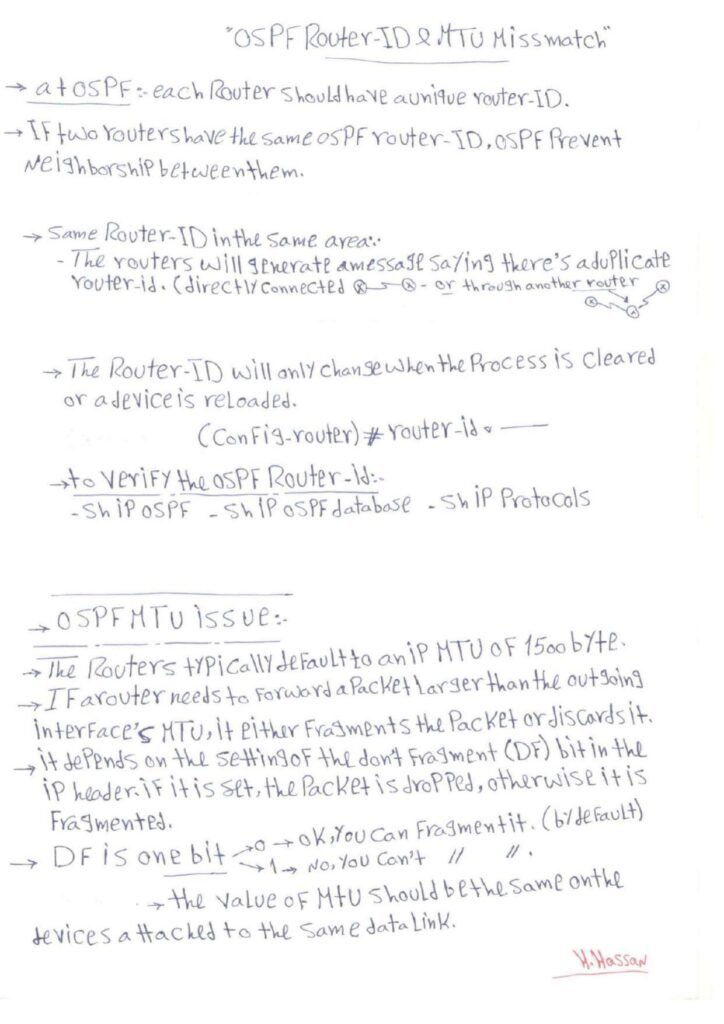 "OSPF Router-ID & MTU Missmatch"
→ at OSPF:- each Router should have a unique router-ID.
→ If two routers have the same OSPF router-ID, OSPF Prevent
Neighborship between them.
→ Same Router-ID in the same area:-
- The routers will generate a message saying there's a duplicate
router-id. (directly connected - or through another router
→ The Router-ID will only change when the Process is cleared
or a device is reloaded.
(Config-router)# router-id
→ to verify the OSPF Router-id:-
- Sh iP OSPF - Sh iP OSPF database - Sh iP Protocols
→ OSPF MTU issue:-
→ The Routers typically default to an iP MTU of 1500 byte.
→ If a router needs to forward a Packet larger than the outgoing
interface's MTU, it either fragments the Packet or discards it.
→ it depends on the setting of the don't fragment (DF) bit in the
iP header. if it is set, the Packet is dropped, otherwise it is
fragmented.
→ DF is one bit → 0 → OK, You can fragment it. (by default)
→ 1 → No, You can't // //.
→ the value of MTU should be the same on the
devices attached to the same data Link.
H.Hassan